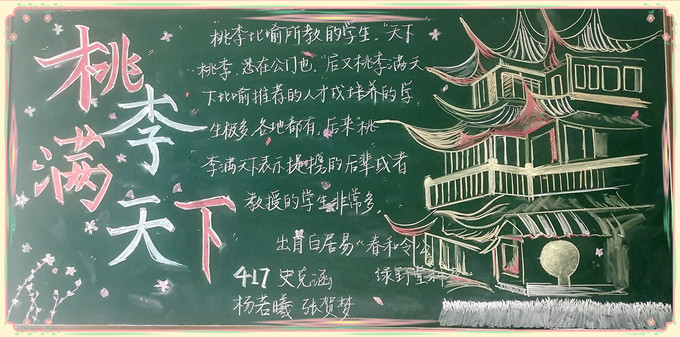 桃李满天下
"桃李比喻所教的学生,"天下
桃李,悉在公门也,"后又桃李满天
下比喻推荐的人才或培养的学
生极多,各地都有,后来"桃
李满天下表示提携的后辈或者
教授的学生非常多,
出肖白居易《春和令公
绿野堂种
417 史克涵
杨若曦 张贺梦